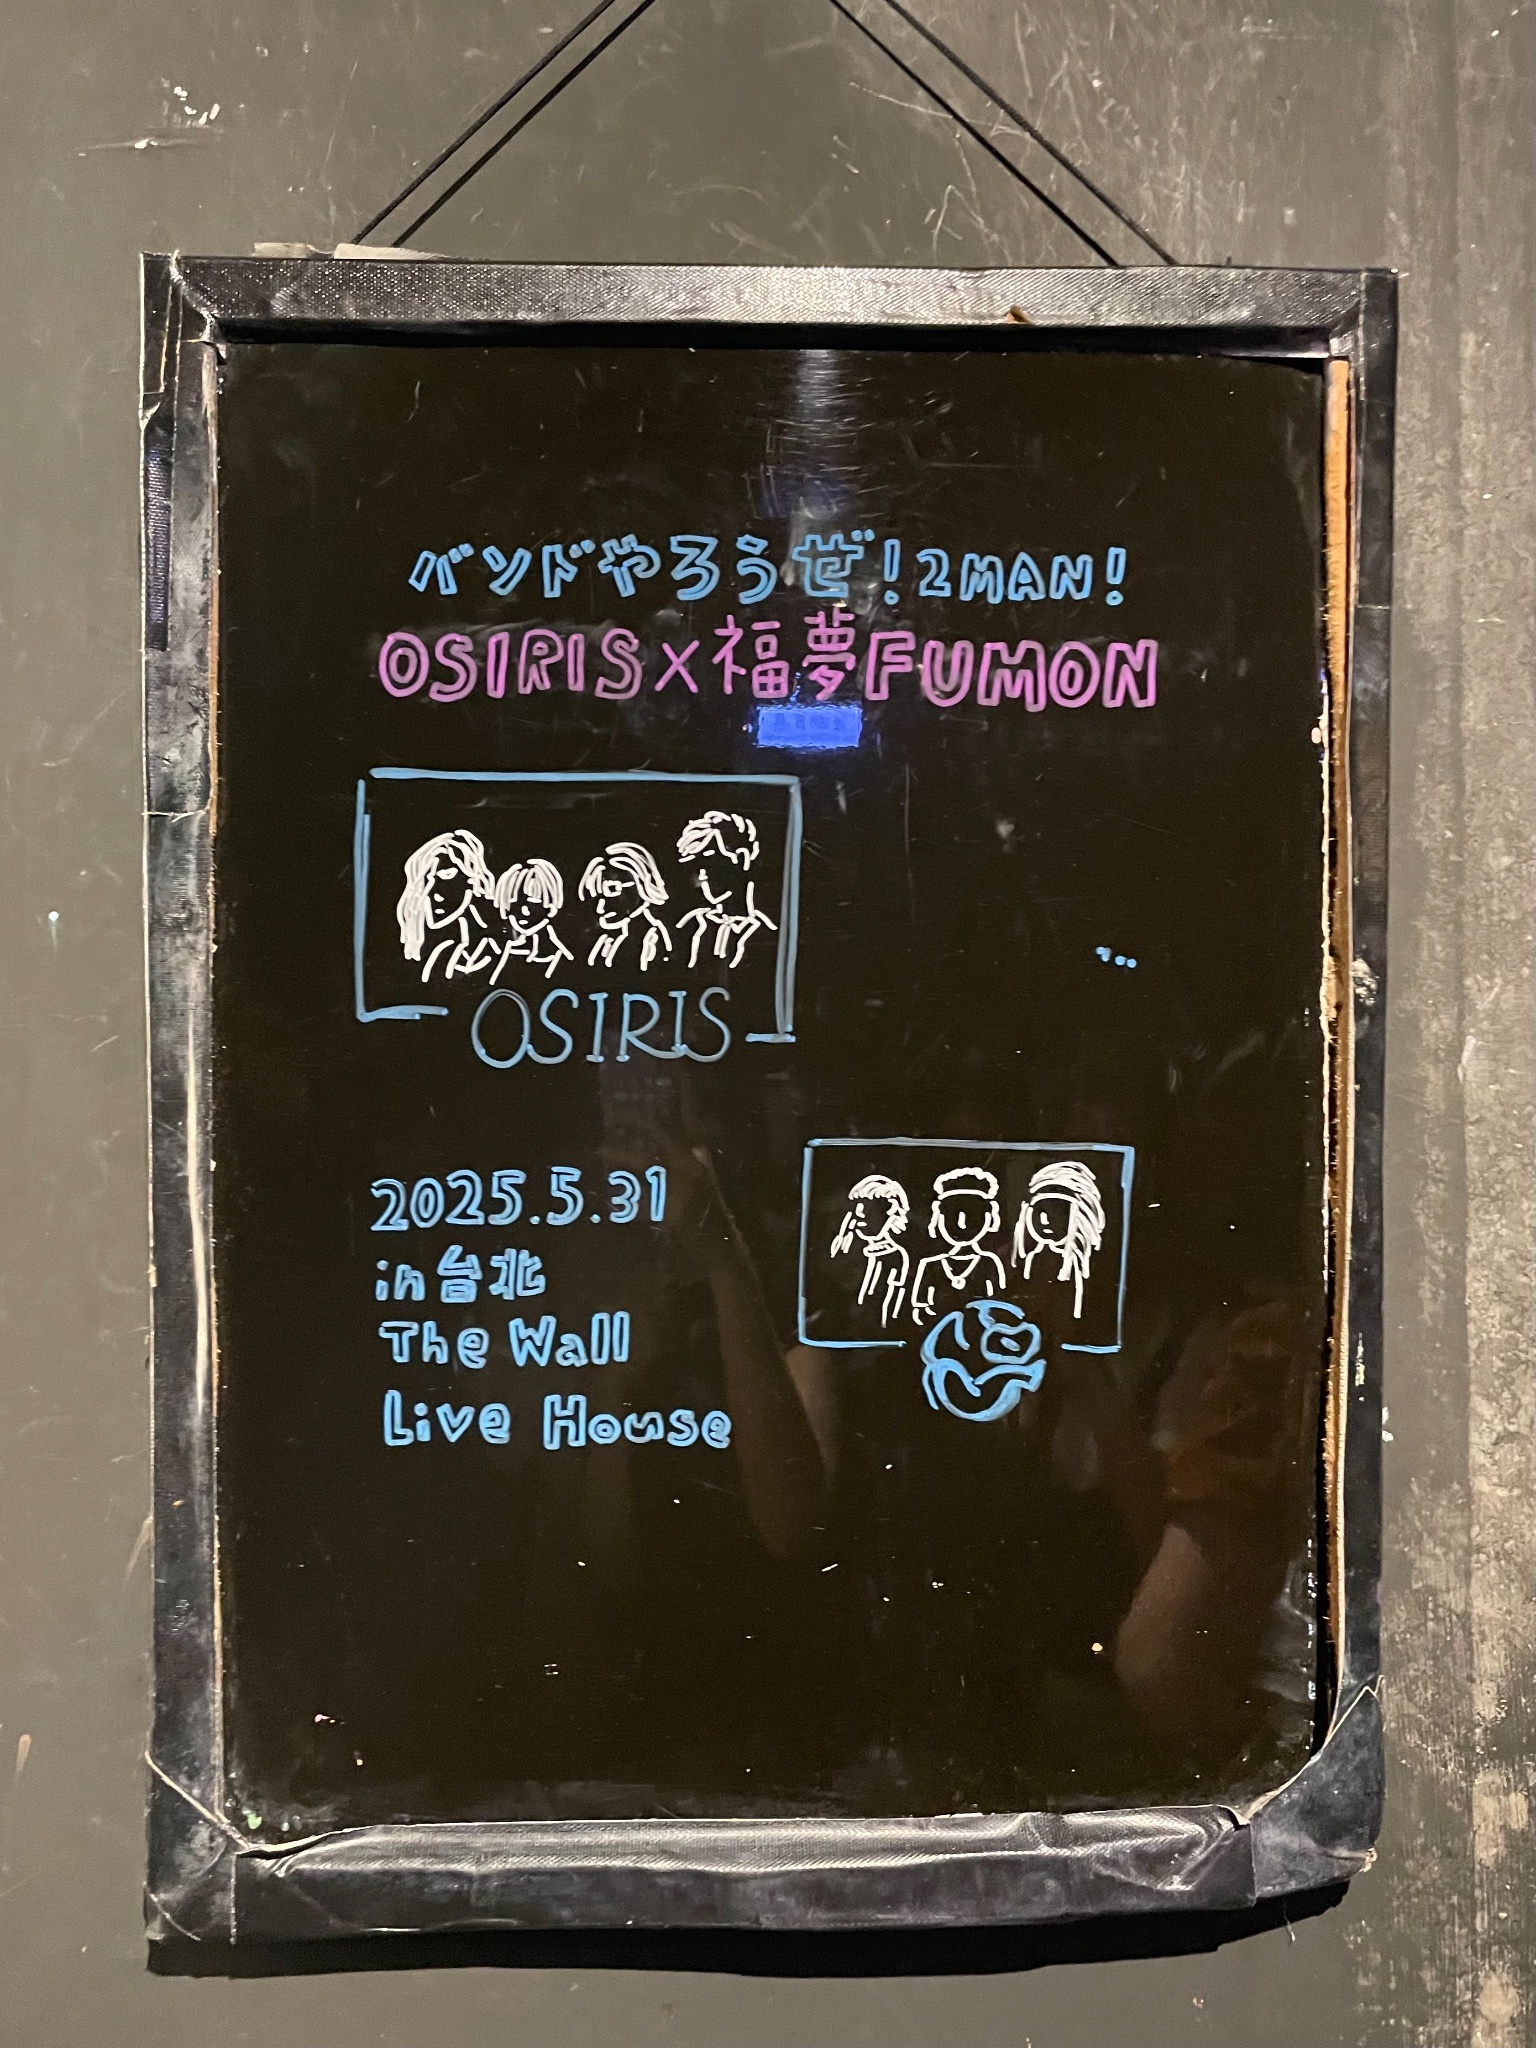 バンドやろうぜ！2MAN！
OSIRIS×福夢FUMON
OSIRIS
2025.5.31
in台北
The Wall
Live House